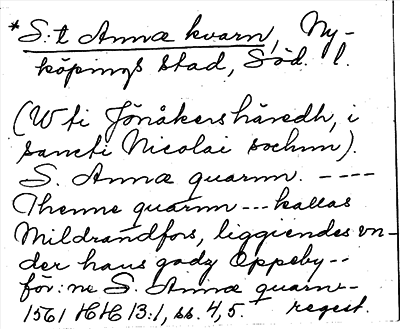 *S:t Annæ kvarn, Ny-
köpings stad, Söd. l.
(W ti Jönåkershäredh, i
sancti Nicolai sochnn).
S. Annæ quarnn. ----
Thenne quarnn --- kallas
Mildrandfos, liggiendes vn-
der hans gady Oppeby--
för:ne S. Annæ quarn--
1561 HH 13:1, ss. 4, 5. regest.